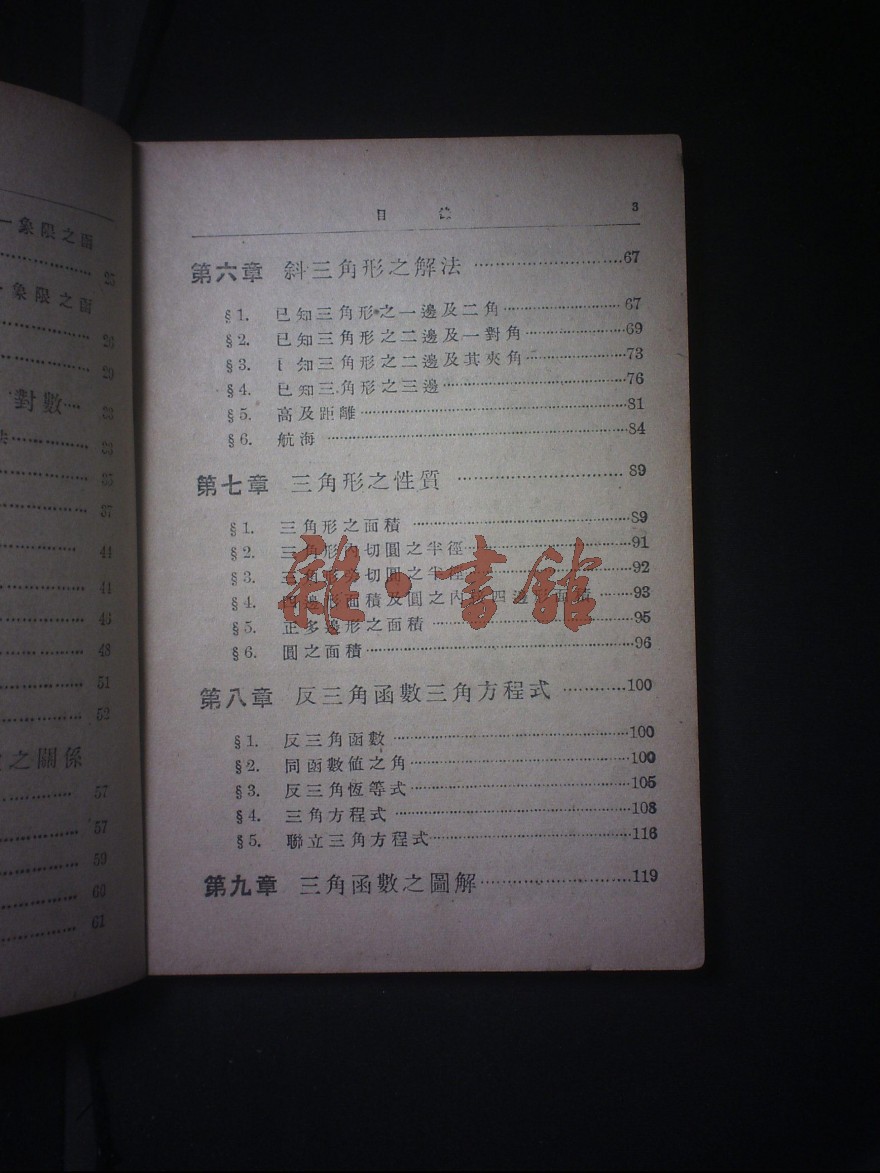 一象限之面
25
一象限之面
26
29
對數
33
法 33
35
37
44
44
46
48
51
52
之關係
57
57
59
60
61
目 錄 3
第六章 斜三角形之解法 67
§1. 已知三角形之一邊及二角 67
§2. 已知三角形之二邊及一對角 69
§3. 已知三角形之二邊及其夾角 73
§4. 已知三角形之三邊 76
§5. 高及距離 81
§6. 航海 84
第七章 三角形之性質 89
§1. 三角形之面積 89
§2. 三角形內切圓之半徑 91
§3. 三角形外切圓之半徑 92
§4. 四邊形面積及圓之內接四邊形面積 93
§5. 正多邊形之面積 95
§6. 圓之面積 96
第八章 反三角函數三角方程式 100
§1. 反三角函數 100
§2. 同函數値之角 100
§3. 反三角恆等式 105
§4. 三角方程式 108
§5. 聯立三角方程式 116
第九章 三角函數之圖解 119
雜·書館